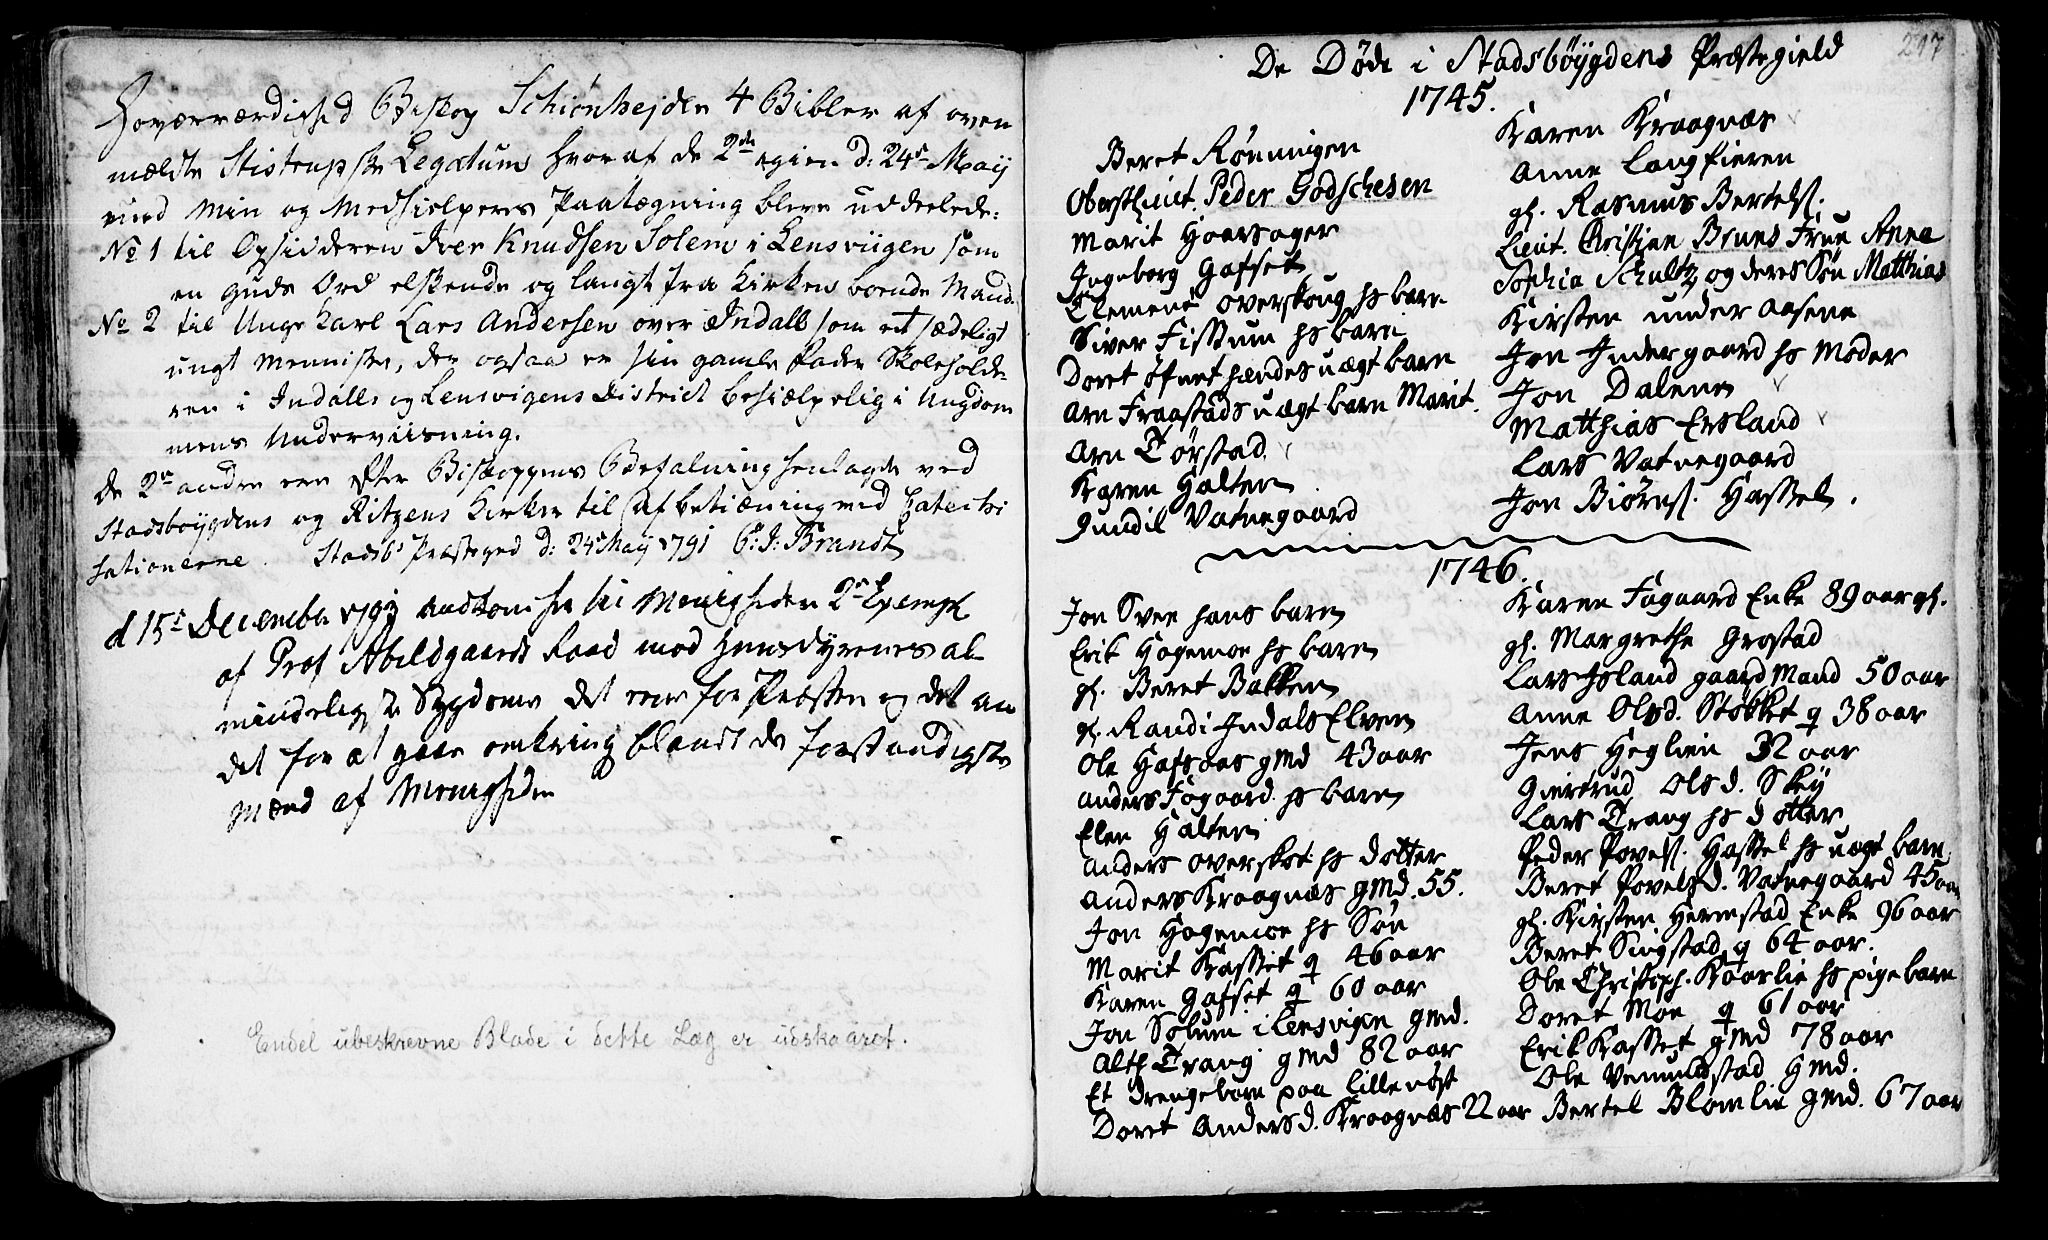 Høyærværdighed Biskop Schiønhejder 4 Bibler af oven
mældte Stistrupske Legatum hvoraf de 2de igien d: 24de Maij
med min og Medhielperes Paategning bleve uddeelede:
No 1 til Opsidderen Iver Knudsen Solem i Lensviigen som
en Guds Ord elskende og langt fra Kirken boende Mand
No 2 til Unge Karl Lars Andersen over Indall som et sædeligt
ungt Menniske, der ogsaa er sin gamle Fader Skoleholde-
ren i Indalls og Lensvigens District behielpelig i Ungdom
mens Underviisning.
de 2de andre ere efter Biskoppens Befalning henlagde ved
Stadsboygdens og Ritzens Kirker til afbetiæning ved Catechi
sationerne. Stadsbs Præstegrd d: 24de Maij 1791 C: J: Brandt
d 15de December 1799 til Menigheden 2de Exempl
af Prof Abildgaards Raad mod Huusdyrenes al
mindeligste Sygdomme det eene for Præsten og det an
det for at gaae omkring blandt de forstandigste
Mænd af Menigheden
Endel ubeskrevne Blade i dette Læg er udskaaret.
217
De Døde i Stadsbøygdens Præstegield
1745.
Beret Rønningen
Oberstlieut. Peder Godschesen
Marit Haarsager
Ingeborg Gafset
Clement Overskoug hs barn
Siver Fissum hs barn
Doret Øfret hendes uægt barn
Arn Fraastads uægt barn Marit.
Arn Tørstad
Karen Halten
Gundil Vatnegaard
Karen Kraagnæs
Anne Langfieren
gl. Rasmus Bertelss.
Lieut. Christian Bruns Frue Anna
Sophia Schultz og deres Søn Matthias
Kirsten under aasene
Jon Indergaard hs Moder
Jon Dalene
Matthias Ersland
Lars Vatnegaard
Jon Biørnss. Hassel.
1746.
Jon Svee hans barn
Erik Hogemoe hs barn
gl. Beret Bakken
gl. Randi Indals Elven
Ole Hafsaas gmd 43 aar
Anders Fogaard hs barn
Elen Halten
Anders overskot hs dotter
Anders Kraagnæs gmd. 55.
Jon Hogemoe hs Søn
Marit Kasset q 46 aar
Karen Gafset q 60 aar
Jon Solum i Lensvigen gmd.
Alth Trang gmd 82 aar
Et drengebarn paa Lillenøst
Doret Andersd. Kraagnæs 22 aar
Karen Fagaard Enke 89 aar gl.
gl. Margrethe Grøstad
Lars Island gaardmand 50 aar
Anne Olsd. Støkket q 38 aar
Jens Heglien 32 aar
Giertrud Olsd. Skey
Lars Trang hs dotter
Peder Povelss. Hassel hs uægt barn
Beret Povelsd. Vatnegaard 45 aar
gl. Kirsten Hermstad Enke 96 aar
Beret Singstad q 64 aar.
Ole Christoph. Kaarlie hs pigebarn
Doret Moe q 61 aar
Erik Kasset gmd 78 aar
Ole Vemundstad gmd.
Bertel Blomlie gmd. 67 aar